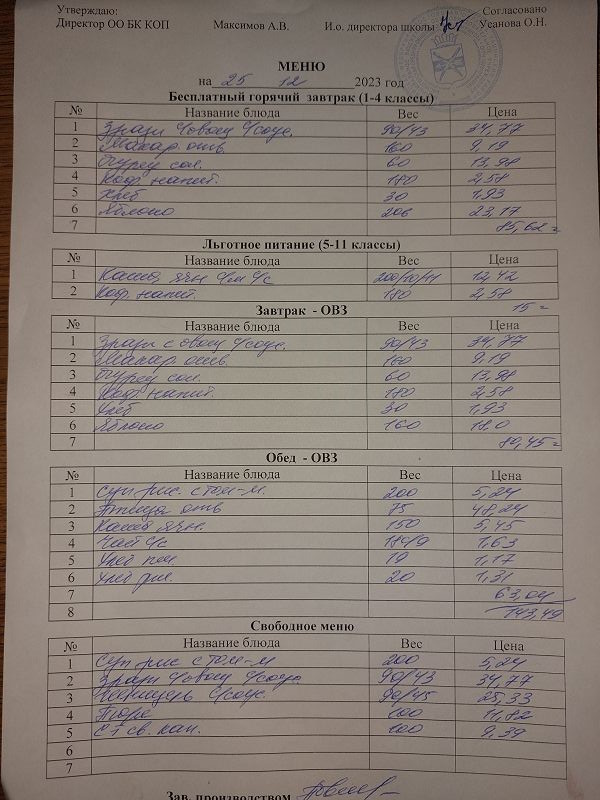 Утверждаю: Согласовано
Директор ОО БК КОП Максимов А.В. И.о. директора школы Усанова О.Н.
МЕНЮ
на 25 12 2023 год
Бесплатный горячий завтрак (1-4 классы)
№ Название блюда Вес Цена
1 Зразы с/овощ с/соус. 90/43 34,77
2 Макар. отв. 160 9,19
3 Огурец сол. 60 13,98
4 Коф. напит. 180 2,58
5 Хлеб 30 1,93
6 Яблоко 206 23,17
7 85,62
Льготное питание (5-11 классы)
№ Название блюда Вес Цена
1 Каша ячн с/м с/с 12,42
2 Коф. напит. 180 2,58
15 =
Завтрак - ОВЗ
№ Название блюда Вес Цена
1 Зразы с овощ с/соус. 90/43 34,77
2 Макар. отв. 160 9,19
3 Огурец сол. 60 13,98
4 Коф. напит. 180 2,58
5 Хлеб 30 1,93
6 Яблоко 160 18,0
7 80,45
Обед - ОВЗ
№ Название блюда Вес Цена
1 Суп рис. с том-м. 200 5,24
2 Птица отв 75 48,24
3 Каша ячн. 150 5,45
4 Чай с/с 1,63
5 Хлеб пш. 19 1,17
6 Хлеб рж. 20 1,31
7 63,04
8 143,49
Свободное меню
№ Название блюда Вес Цена
1 Суп рис с том-м 200 5,24
2 Зразы с/овощ с/соус. 90/43 34,77
3 с/соус. 90/45 25,33
4 Пюре 100 11,82
5 Ст св. кап. 100 9,39
6
7
Зав. производством